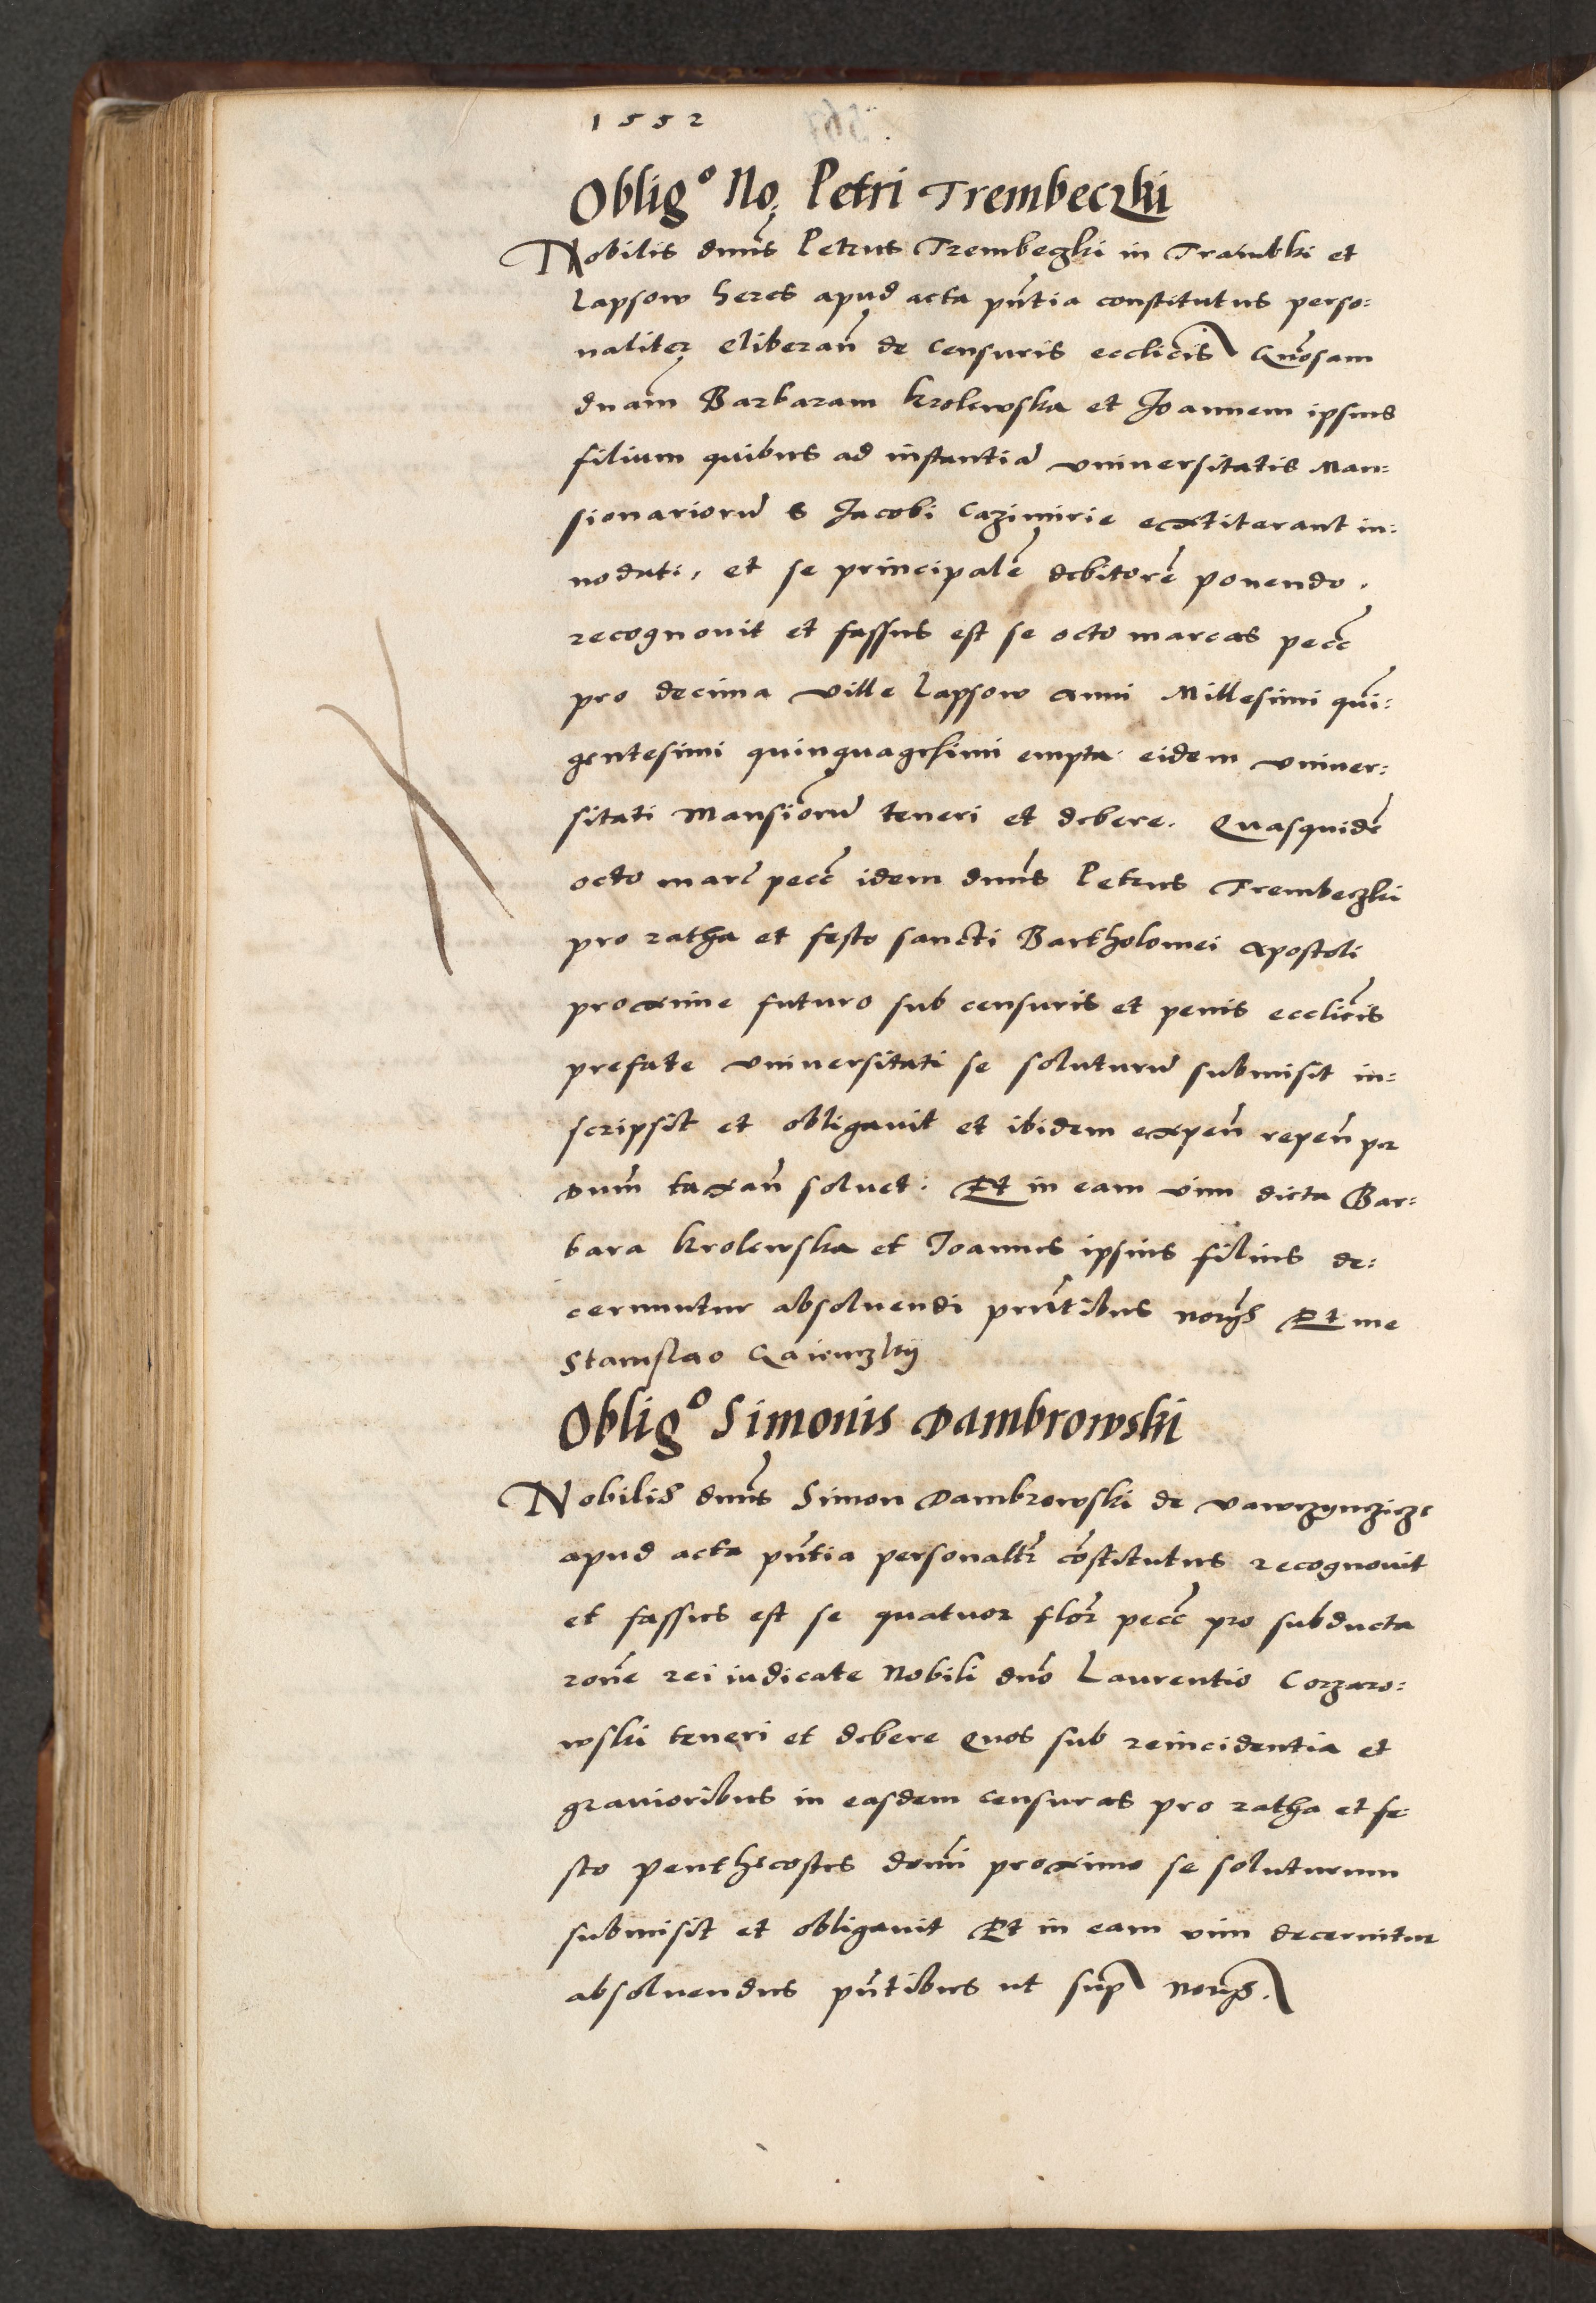 1552
Oblig° No: Petri Trembeczki
Nobilis dnns Petrus Trembeczki in Trambki et
Lapsow heres apud acta pntia constitutus perso:
naliter eliberan de censuris ecclicis Gnosam
dnam Barbaram Krolewska et Joannem ipsius
filium quibus ad instantia universitatis Man:
sionarioru S Jacobi Cazimirie extiterant in:
nodati, et se principale debitore ponendo.
recognovit et fassus est se octo marcas pecc
pro decima ville Lapsow anni Millesimi qui:
gentesimi quinquagesimi empta eidem univer:
sitati Mansioru teneri et debere. Quasquide
octo marc pecc idem dnns Petrus Trembeczki
pro ratha et festo sancti Bartholomei apostoli
proxime futuro sub censuris et penis ecclicis
prefate universitati se soluturu submisit in:
scripsit et obligavit et ibidem expen repen per
dum taxan solvet. Et in eam vim dicta Bar:
bara Krolewska et Joannes ipsius filius de:
cernuntur absolvendi pntibus norys Et me
Stanislao
Oblig° Simonis Dambrowski
Nobilis dnns Simon Dambrowski de vawrzynczicze
apud acta pntia personaltr costitutus recognovit
et fassus est se quatuor flor pecc pro subducta
rone rei iudicate Nobili dno Laurentio Corzaro:
wski teneri et debere quos sub reincidentia et
gravioribus in easdem censuras pro ratha et fe:
sto penthecostes domi proximo se soluturum
submisit et obligavit Et in eam vim decernitur
absolvendus pntibus ut sup norys.